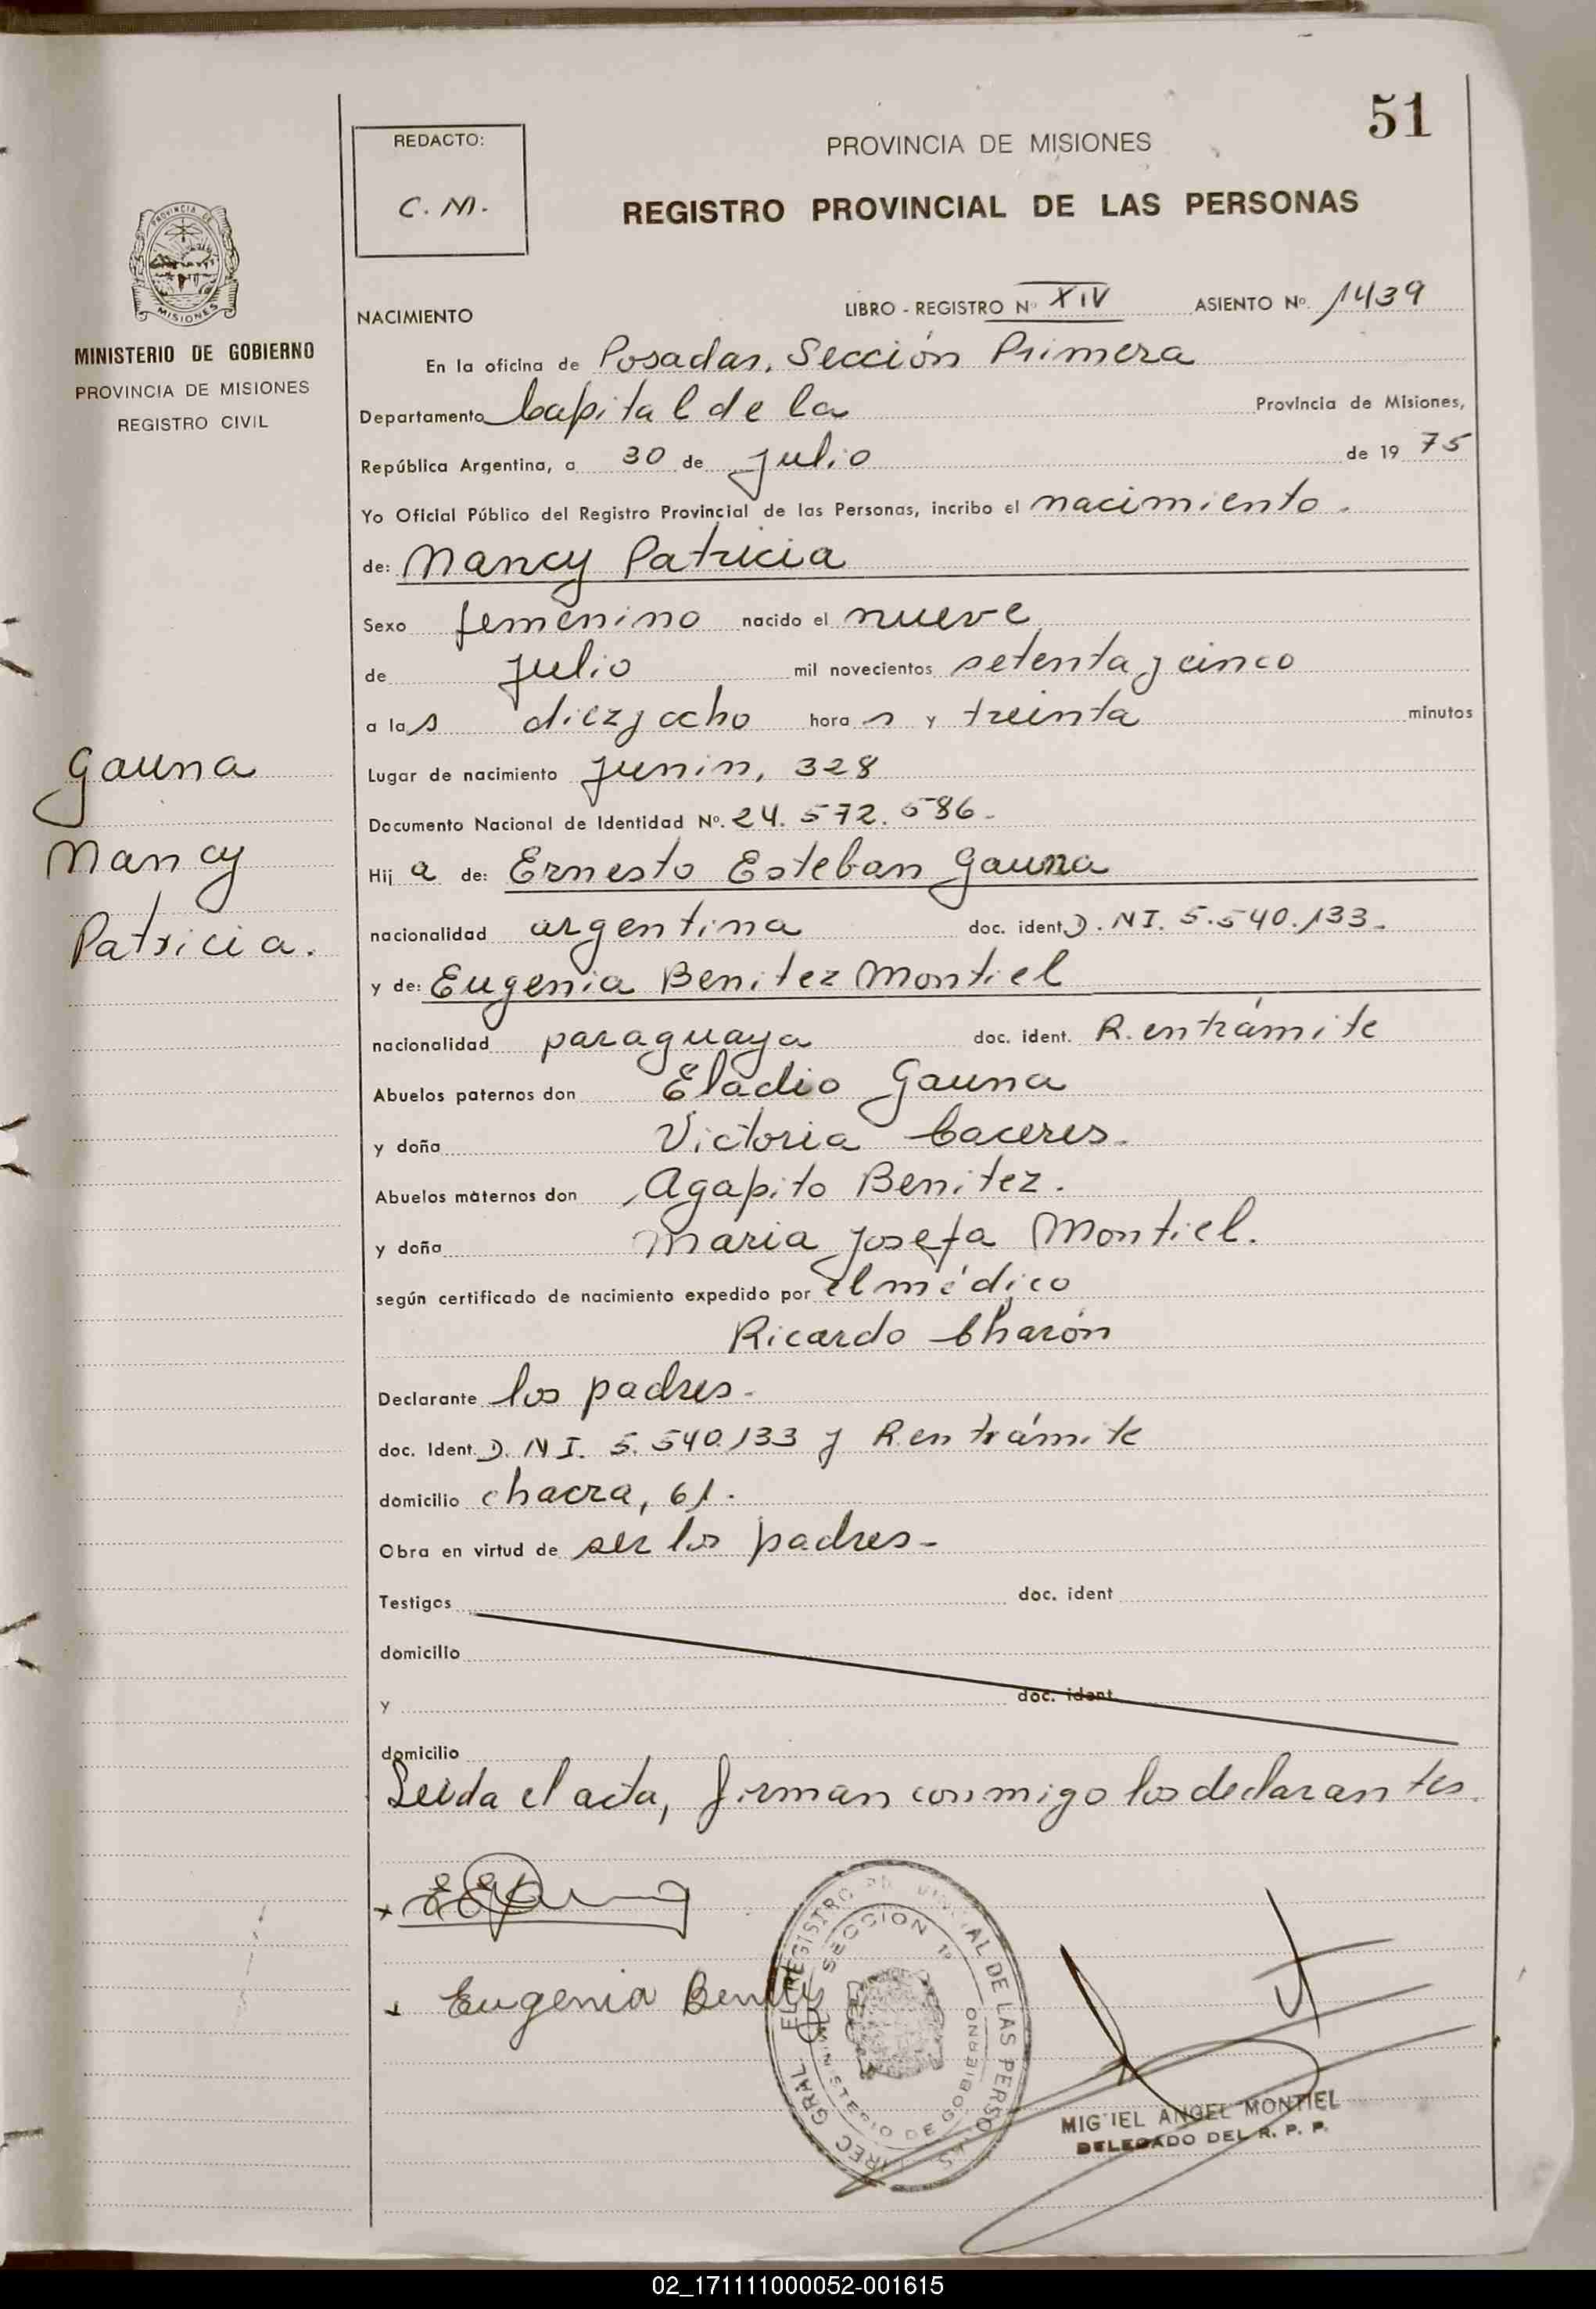 51
REDACTO:
C. M.
PROVINCIA DE MISIONES
REGISTRO PROVINCIAL DE LAS PERSONAS
PROVINCIA DE
MISIONES
MINISTERIO DE GOBIERNO
PROVINCIA DE MISIONES
REGISTRO CIVIL
NACIMIENTO LIBRO - REGISTRO Nº XIV ASIENTO Nº. 1439
En la oficina de Posadas, Sección Primera
Departamento Capital de la Provincia de Misiones,
República Argentina, a 30 de Julio de 19 75
Yo Oficial Público del Registro Provincial de las Personas, incribo el nacimiento.
de: Nancy Patricia
Sexo femenino nacido el nueve
de Julio mil novecientos setenta y cinco
a las diez y ocho hora s y treinta minutos
Lugar de nacimiento Junin, 328
Documento Nacional de Identidad Nº. 24. 572. 586.
Hij a de: Ernesto Esteban Gauna
nacionalidad argentina doc. ident D. NI. 5.540.133.
y de: Eugenia Benitez Montiel
nacionalidad paraguaya doc. ident. R. en trámite
Abuelos paternos don Eladio Gauna
y doña Victoria Caceres.
Abuelos maternos don Agapito Benitez.
y doña Maria Josefa Montiel.
según certificado de nacimiento expedido por el médico
Ricardo Charón
Declarante los padres.
doc. Ident. D. NI. 5. 540.133 y R.en trámite
domicilio chacra, 61.
Obra en virtud de ser los padres-
Testigos doc. ident
domicilio
y doc. ident
domicilio
Leida el acta, firman conmigo los declarantes.
Gauna
Nancy
Patricia.
Eugenia Benitez
SECCION 1ª
MINISTERIO DE GOBIERNO
MIGUEL ANGEL MONTIEL
DELEGADO DEL R. P. P.
02_171111000052-001615